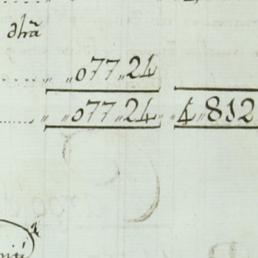 dh̃a
„ „077„24
„ „077„24 „4„812